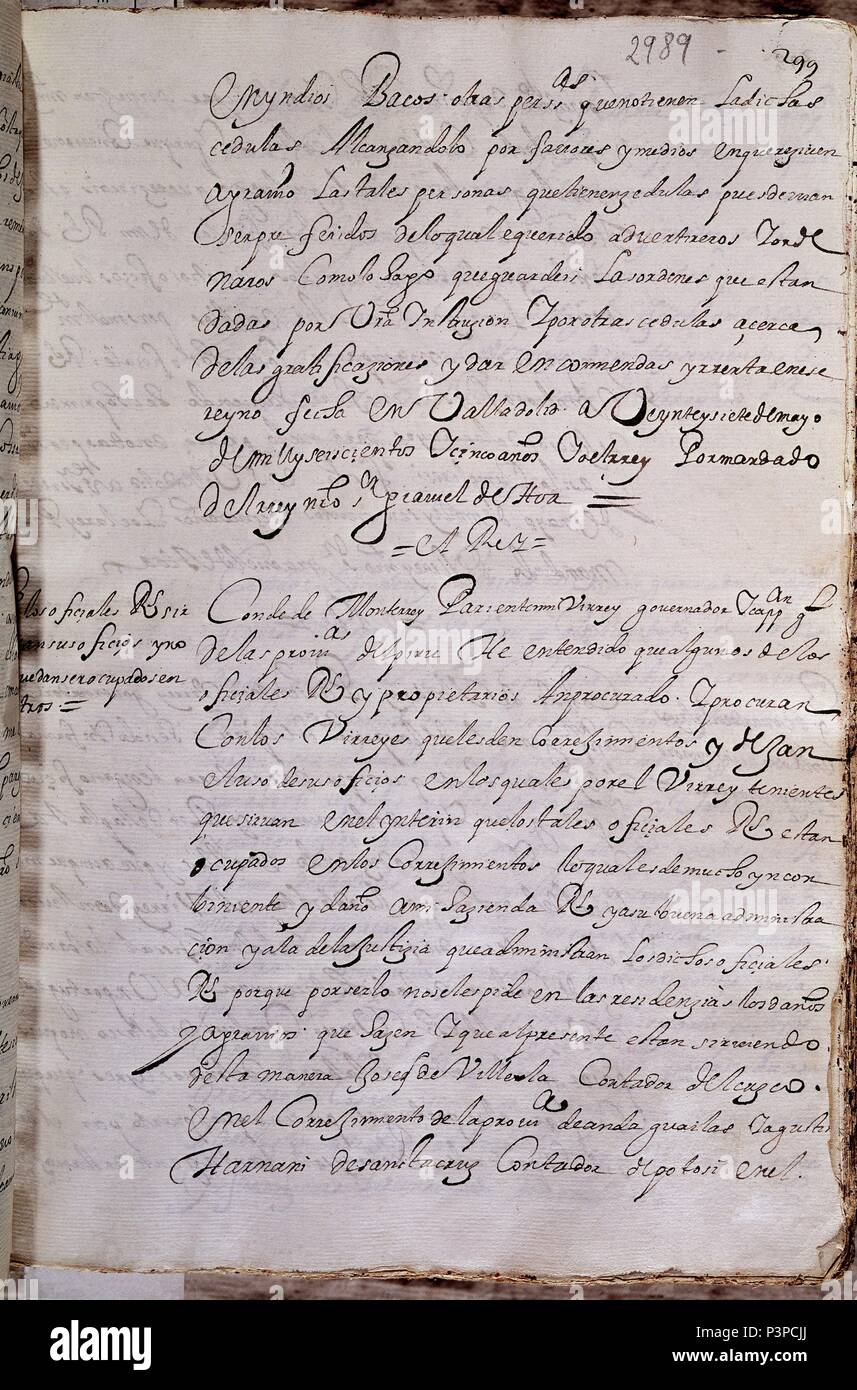 2989
299
en yndios Bacos otras perss.as que no tienen Ladichas
cedulas Alcanzandolo por favores y medios en que reziven
agravio Las tales personas que tienen zedulas pues devian
ser preferidos de lo qual e querido advertiros y orde
naros Como lo hago que guardeis Las ordenes que estan
dadas por Vra Instruzion y por otras cedulas açerca
de las gratificaziones y dar encomiendas y rrenta en ese
reyno fecha en Valladolid a Veynte y siete de mayo
de mill y seiscientos y cinco años Yo el rrey Por mandado
del rrey nro s.r gravel de Hoa =
= A Rez =
los oficiales Rs sir
an sus oficios y no
uedan ser ocupados en
tros =
Conde de Monterrey Pariente mi Virrey governador y capp.an gl
de las provi.as del piru He entendido que algunos de los
oficiales Rs y propietarios An procurado y procuran
Con los Virreyes que les den Correximientos y dexan
el uso de sus oficios en los quales por el Virrey tenientes
que sirvan en el ynterin que los tales oficiales Rs estan
ocupados en los Correximientos lo qual es de mucho yncon
biniente y daño a mi hazienda Rl y a su buena administra
cion y a la de la Justizia que administran Los dichos oficiales
Rs porque por serlo no se les pide en las residenzias los daños
y agravios que hazen y que al presente estan sirviendo
desta manera Josef de Villela Contador del cuzco
en el Correximiento de la provi.a de andaguailas y agusti
Harnani de sancta cruz Contador de potosi en el
alamy
alamy
Image ID: J3PCJJ
www.alamy.com